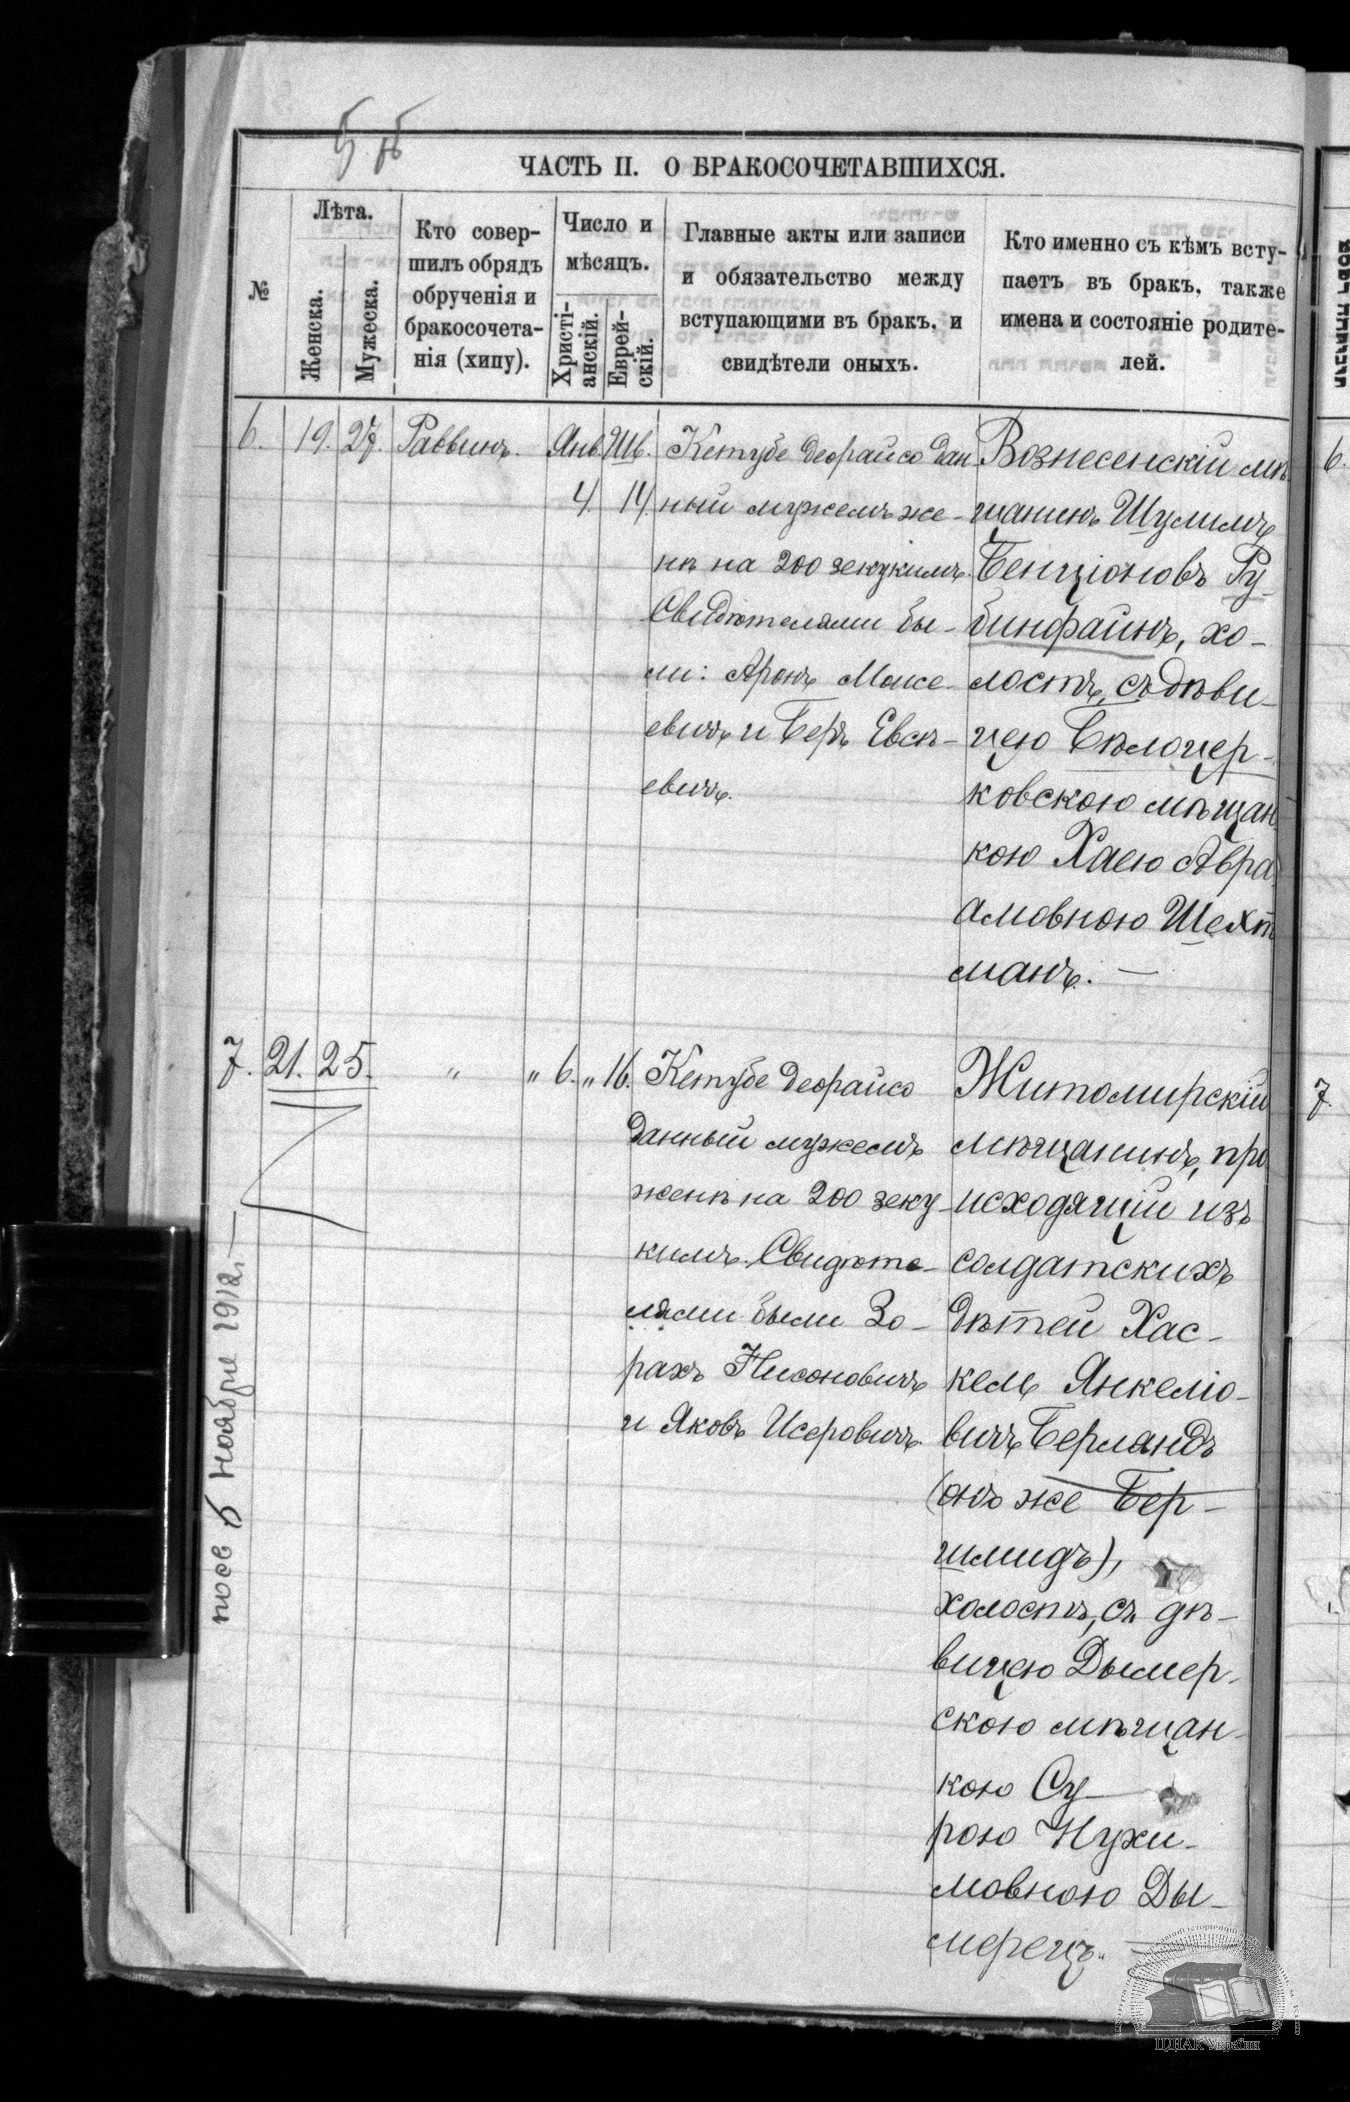 ЧАСТЬ II. О БРАКОСОЧЕТАВШИХСЯ.
№
Лѣта.
Женска.
Мужеска.
Кто совер-
шилъ обрядъ
обрученія и
бракосочета-
нія (хипу).
Число и
мѣсяцъ.
Христі-
анскій.
Еврей-
скій.
Главные акты или записи
и обязательство между
вступающими въ бракъ, и
свидѣтели оныхъ.
Кто именно съ кѣмъ всту-
паетъ въ бракъ, также
имена и состояніе родите-
лей.
6. 19. 27. Раввинъ. Янв. 4. Шв. 14.
Кетубе деорайсо дан
ный мужемъ же-
нѣ на 200 зекукимъ.
Свидѣтелями бы-
ли: Аронъ Моисе-
евичъ и Беръ Евсѣ-
евичъ.
Вознесенскій мѣ
щанинъ Шулимъ
Бенціоновъ Ру-
бинфайнъ, хо-
лостъ, съ дѣви-
цею Бѣлоцер-
ковскою мѣщан
кою Хаею Авра
амовною Шехт
манъ. —
7. 21. 25. " " 6. " 16.
Кетубе деорайсо
данный мужемъ
женѣ на 200 зеку-
кимъ. Свидѣте-
лями были Зо-
рахъ Нисоновичъ
и Яковъ Исеровичъ.
Житомирскій
мѣщанинъ, про
исходящій изъ
солдатскихъ
дѣтей Хас-
кель Янкеліо-
вичъ Берландъ
(онъ же Бер-
шмидъ),
холостъ, съ дѣ-
вицею Дымер-
скою мѣщан-
кою Су-
рою Нухи-
мовною Ды-
мерецъ. —
6 Ноября 1912 г.
6.
7.
ЦДІАК України